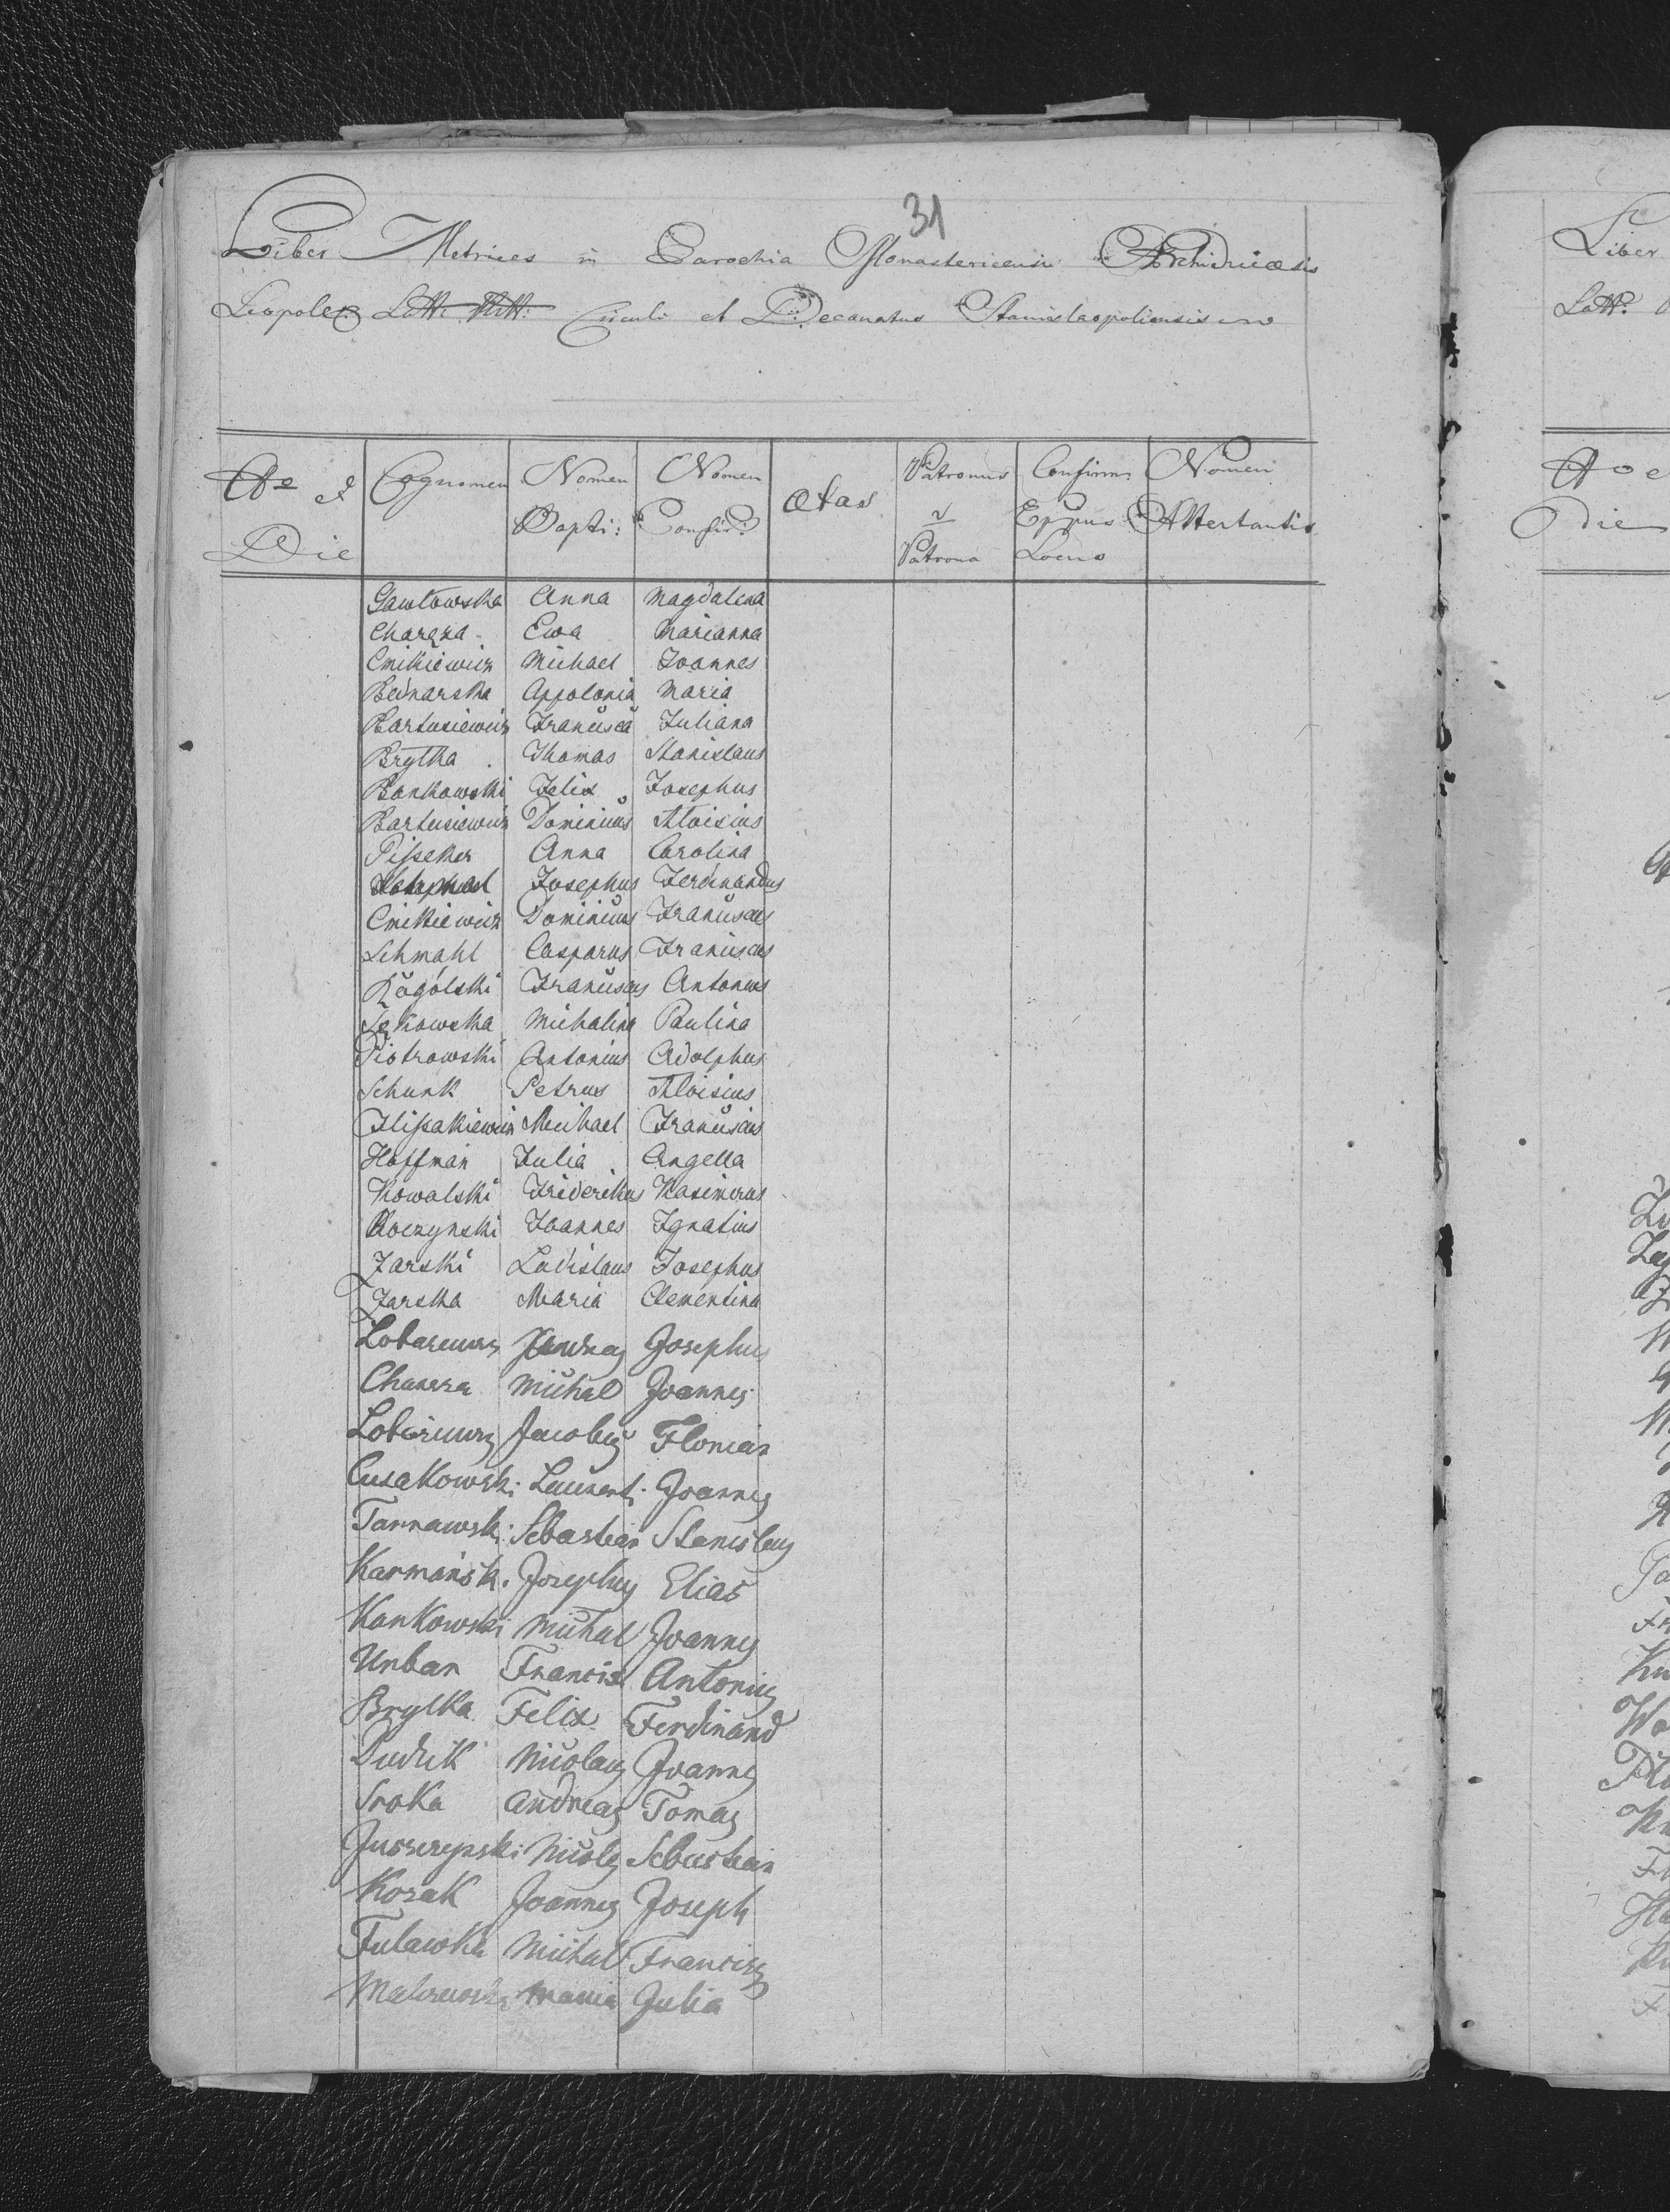 31
Liber Metrices in Parochia Monasteriensi Archidiœcesis
Leopole: Latt: Ritt: Circuli et Decanatus Stanislaopoliensis
Ao et Die Cognomen Nomen Bapti: Nomen Confir: Ætas Patronus v Patrona Confirm: Eppus Locus Nomen Attestantis
Gawłowska Anna Magdalena
Charęza Ewa Marianna
Cmikiewicz Michael Joannes
Bednarska Appolonia Maria
Bartusiewicz Francisca Juliana
Brytka Thomas Stanislaus
Bankowski Felix Josephus
Bartusiewicz Dominicus Aloisius
Pisseker Anna Carolina
Josephus Ferdinandus
Cmikiewicz Dominicus Franciscus
Schmahl Casparus Franciscus
Rogólski Franciscus Antonius
Michalina Paulina
Piotrowski Antonius Adolphus
Schunk Petrus Aloisius
Ilissakiewicz Michael Franciscus
Hoffman Julia Angella
Kowalski Fridericus Kasimirus
Koczynski Joannes Ignatius
Jarski Ladislaus Josephus
Jarska Maria Clementina
Andreas Josephus
Michal Joannes
Jacobus Florian
Cusakowski Laurenti Joannes
Tarnawski Sebastian Stanislaus
Karmańsk. Josephus Elias
Kankowski Michal Joannes
Urban Francis Antonius
Brylka Felix Ferdinand
Dudik Nicolaus Joannes
Sroka Andreas Tomas
Sebastian
Kozak Joannes Joseph
Fulawka Michal Francisz
Maria Julia
Liber
Latt:
Ao e
Die